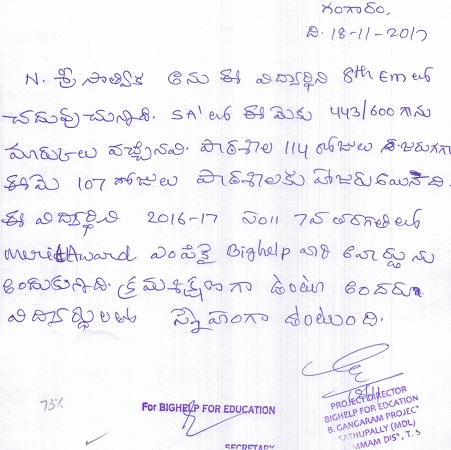 గంగారం,
ది. 18-11-2017
N. శ్రీ సాత్విక అను ఈ విద్యార్థిని 8th Em లో
చదువుచున్నది. SA1 లో ఈ మెకు 443/600 గాను
మార్కులు వచ్చినవి. పాఠశాల 114 రోజులు జరుగగా
ఈమె 107 రోజులు పాఠశాలకు హాజరు అయినది.
ఈ విద్యార్థిని 2016-17 సం॥ 7వ తరగతిలో
Merit Award ఎంపికై Bighelp వారి అవార్డును
అందుకున్నది. క్రమశిక్షణగా ఉంటూ అందరూ
విద్యార్థులతో స్నేహంగా ఉంటుంది.
73%
For BIGHELP FOR EDUCATION
SECRETARY
18/11
PROJECT DIRECTOR
BIGHELP FOR EDCATION
B. GANGARAM PROJEC
SATHUPALLY (MDL)
MMAM DIS', T. S